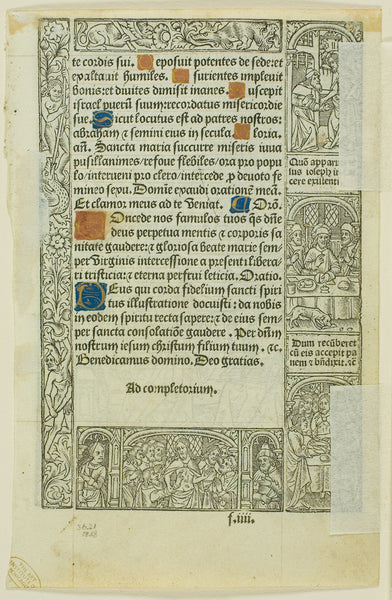 te cordis sui. Deposuit potentes de sede: et
exaltavit humiles. Esurientes implevit
bonis: et divites dimisit inanes. Suscepit
israel puerū suum: recordatus misericordie
sue. Sicut locutus est ad patres nostros:
abraham & semini eius in secula. Gloria.
añ. Sancta maria succurre miseris iuva
pusillanimes / refove flebiles / ora pro popu
lo / interveni pro clero / intercede p devoto fe
mineo sexu. Domie exaudi orationē meā.
Et clamor meus ad te veniat. Orō.
Concede nos famulos tuos qs dñe
deus perpetua mentis & corporis sa
nitate gaudere: & gloriosa beate marie sem
per virginis intercessione a presenti libera
ri tristicia: & eterna perfrui leticia. Oratio.
Deus qui corda fidelium sancti spiri
tus illustratione docuisti: da nobis
in eodem spiritu recta sapere: & de eius sem
per sancta consolatiōe gaudere. Per dñm
nostrum iesum christum filium tuum. &c.
Benedicamus domino. Deo gratias.
Ad completorium.
f.iiii.
Quō appari
tus ioseph it
cere exilenti
Dum recūberet
cū eis accepit pa
nem & bñdixit. &c